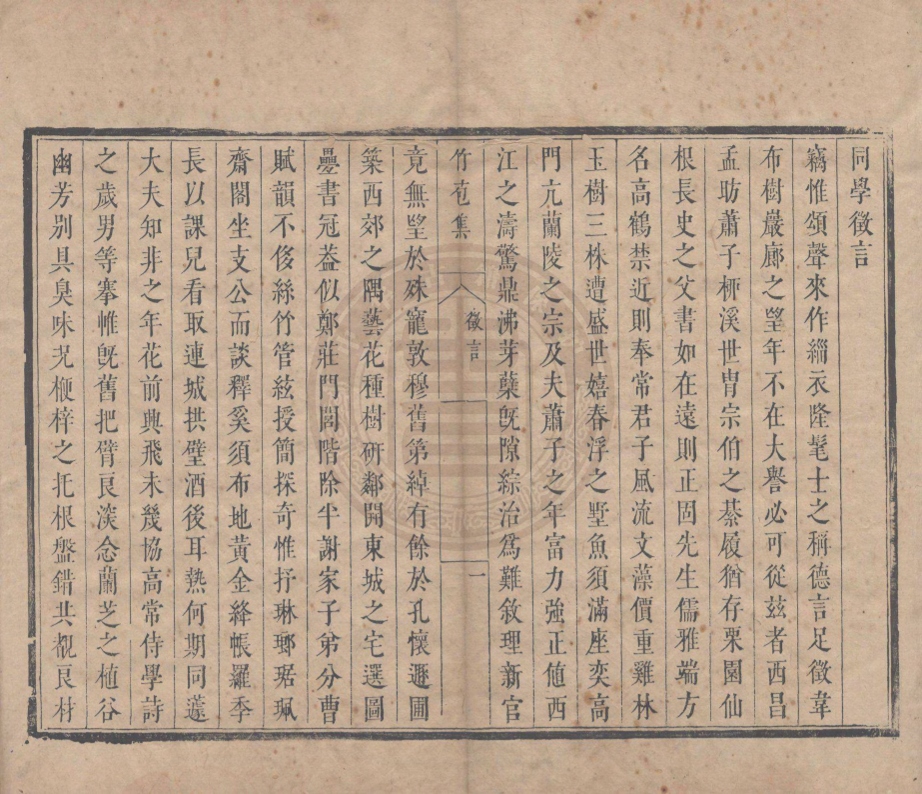 同學徵言
竊惟頌聲來作緇衣隆髦士之稱德言足徵韋
布樹巖廊之望年不在大譽必可從兹者西昌
孟昉蕭子栖溪世冑宗伯之綦履猶存栗園仙
根長史之父書如在遠則正固先生儒雅端方
名高鶴禁近則奉常君子風流文藻價重雞林
玉樹三株遭盛世嬉春浮之墅魚須滿座奕高
門亢蘭陵之宗及夫蕭子之年富力強正値西
江之濤驚鼎沸芽蘖旣隙綜治爲難敘理新官
竹苞集
徵言
一
竟無望於殊寵敦穆舊第綽有餘於孔懷遯圃
築西郊之隅藝花種樹研鄰開東城之宅選圖
疊書冠蓋似鄭莊門閭階除半謝家子弟分曹
賦韻不俊絲竹管絃授簡探奇惟抒琳瑯琚珮
齋閣坐支公而談釋奚須布地黃金絳帳羅季
長以課兒看取連城拱璧酒後耳熱何期同蘧
大夫知非之年花前興飛未幾協高常侍學詩
之歲男等搴帷旣舊把臂艮深念蘭芝之植谷
幽芳別具臭味尤楩梓之托根盤錯共覩艮材